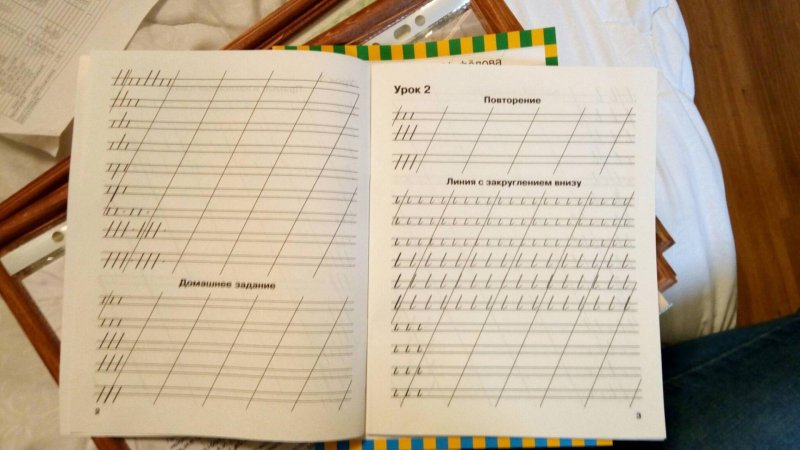 Домашнее задание
2
Урок 2
Повторение
Линия с закруглением внизу
3